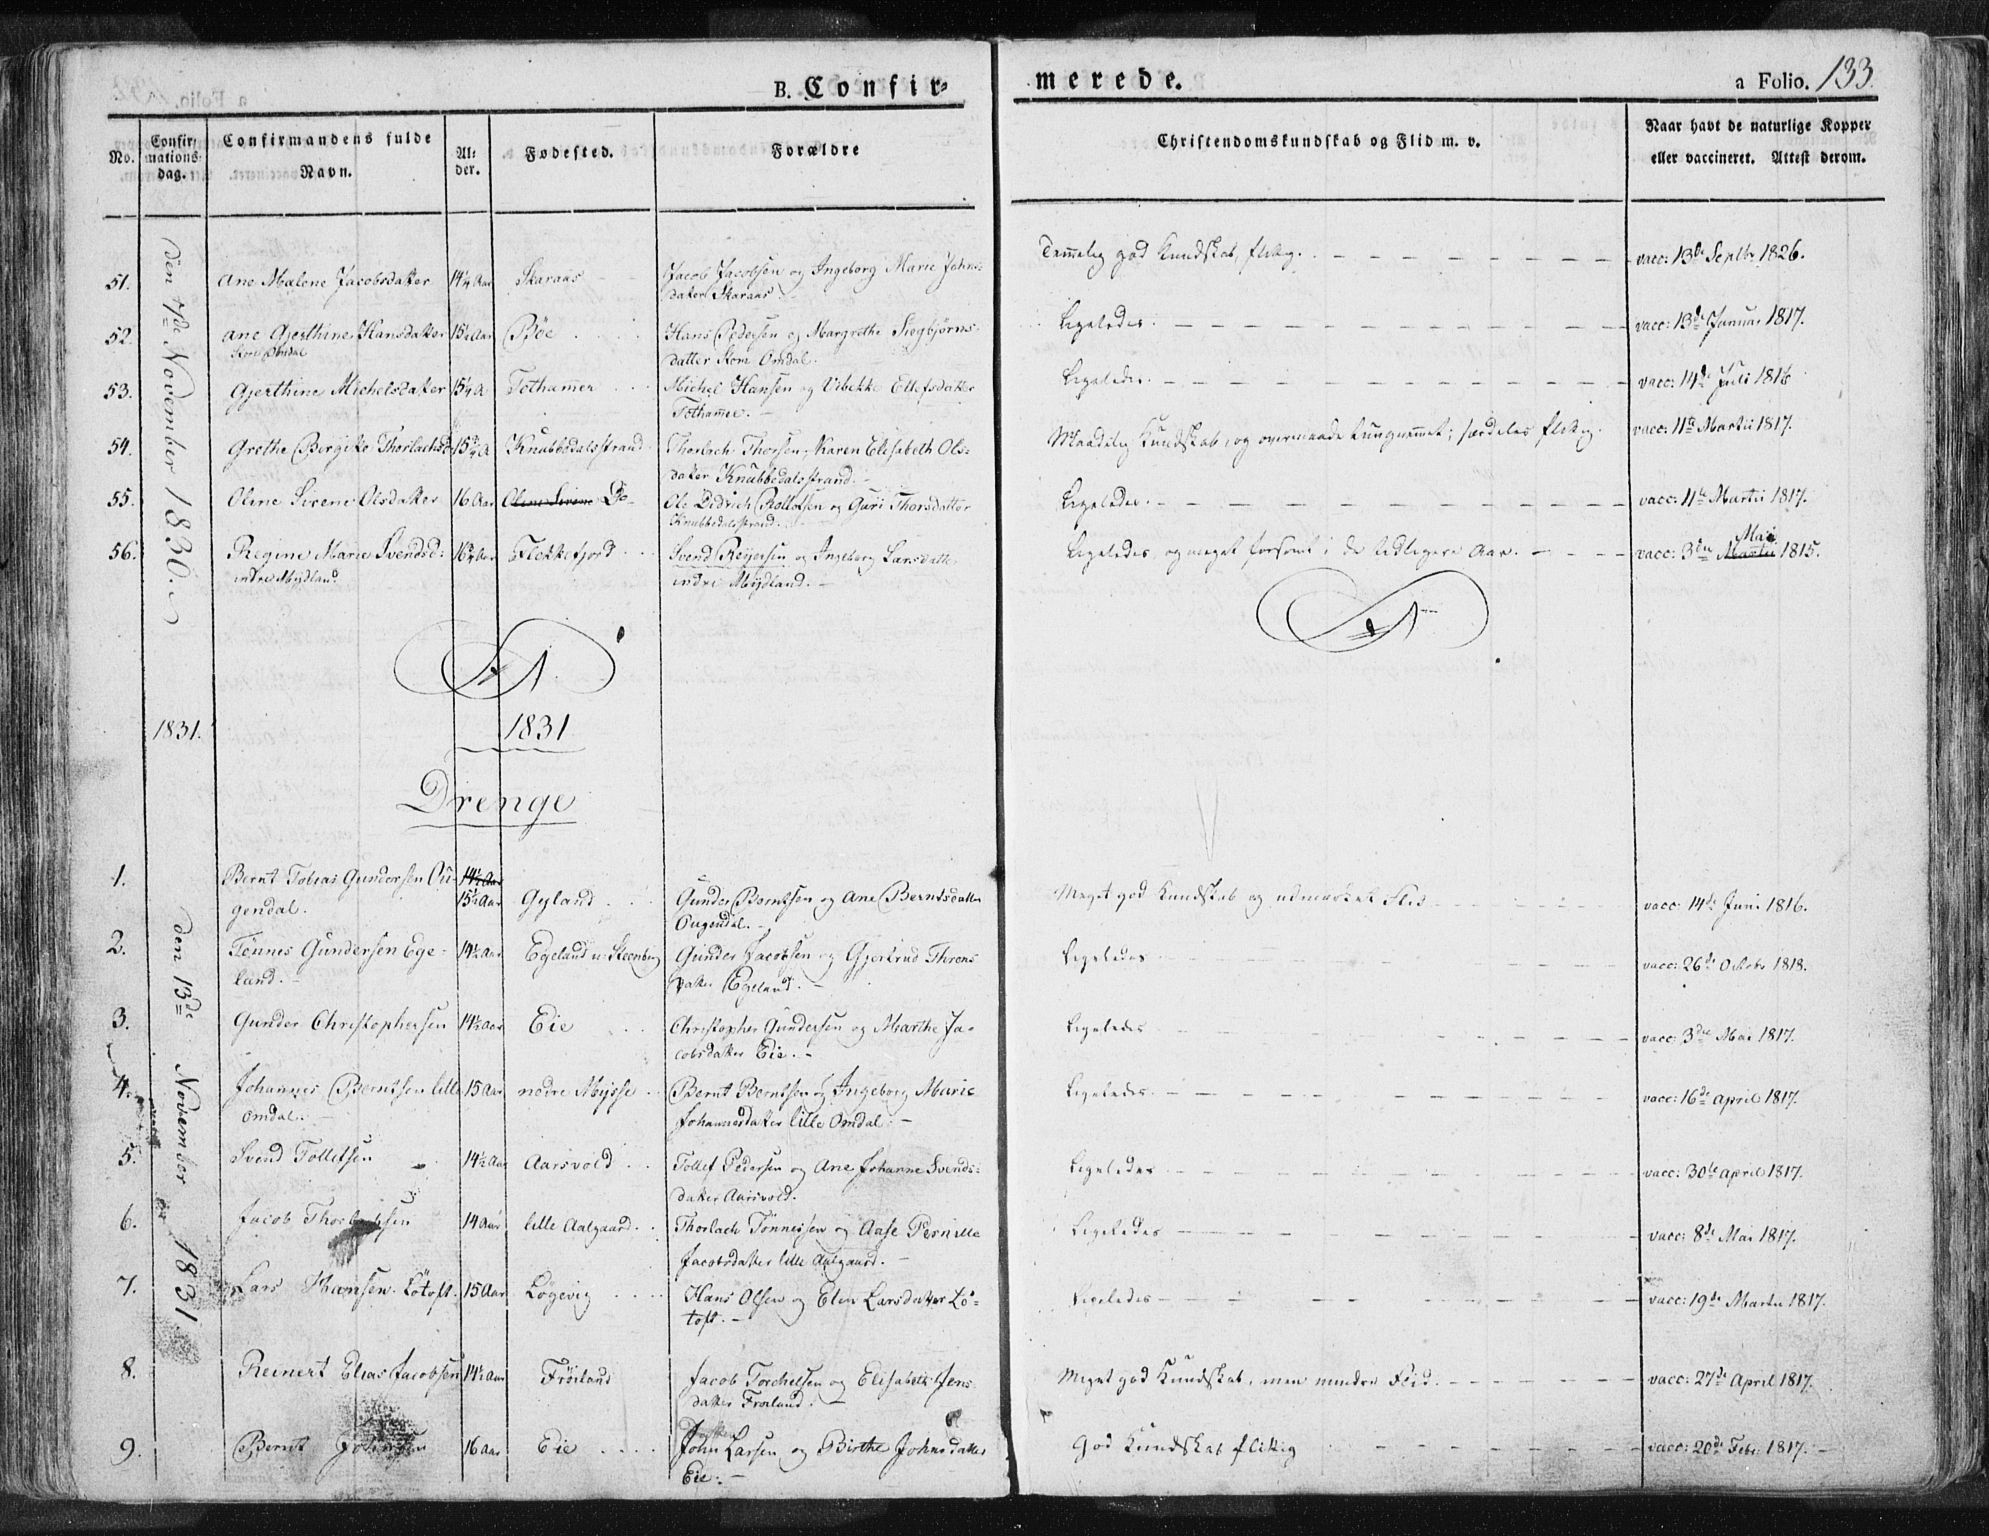 B. Confir-
merede.
a Folio. 133.
No.
Confir-
mations-
dag.
Confirmandens fulde
Navn.
Al-
der.
Fødested.
Forældre
Christendomskundskab og Flid m. v.
Naar havt de naturlige Kopper
eller vaccineret. Attest derom.
den 7de November 1830.
51. Ane Malene Jacobsdatter 14¼ Aar Skaraas Jacob Jacobsen og Ingeborg Marie Johns- Temmelig god Kundskab, flittig. vacc: 13de Septbr 1826.
datter Skaraas.
52. Ane Gjerthine Hansdatter 15½ Aar Bøe Hans Pedersen og Margrethe Siegbjørns- Ligeledes. vacc: 13de Januar 1817.
Store Omdal datter Store Omdal.
53. Gjerthine Michelsdatter 15¼ A Tothamer Michel Hansen og Vibekke Ellefsdatter Ligeledes. vacc: 14de Juli 1816
Tothamer.
54. Grethe Bergitte Thorlachsd. 15¾ A Knubbedalsstrand Thorlach Thorsen, Karen Elisabeth Ols- Maadelig Kundskab, og overmaade tungnemmet; særdeles flittig. vacc: 11te Martii 1817.
datter Knubbedalsstrand.
55. Oline Sirene Olsdatter 16 Aar Oline Sirene Do Ole Didrich Rollofsen og Guri Thorsdatter Ligeledes. vacc: 11te Martii 1817.
Knubbedalsstrand.
56. Regine Marie Svendsd: 16¾ Aar Flekkefjord Svend Reyersen og Ingeborg Larsdatter Ligeledes, og meget forsømt i de tidligere Aar. vacc: 3die Martii Mai 1815.
indre Mydland indre Mydland.
1831. 1831
Drenge
den 13de November 1831
1. Bernt Tobias Gundersen Ou- 14½ Aar
gendal. 15½ Aar Gyland Gunder Berntsen og Ane Berntsdatter Meget god Kundskab og udmærket Flid vacc: 14de Juni 1816.
Ougendal.
2. Tønnes Gundersen Ege- 14½ Aar Egeland u: Steenberg Gunder Jacobsen og Gjertrud Throns Ligeledes vacc: 26de Octobr 1818.
land. datter Egeland.
3. Gunder Christophersen 14½ Aar Eie Christopher Gundersen og Marthe Ja- Ligeledes vacc: 3die Mai 1817.
cobsdatter Eie.
4. Johannes Berntsen lille 15 Aar nedre Mysse Bernt Berntsen og Ingeborg Marie Ligeledes. vacc: 16de April 1817.
Omdal. Johannesdatter lille Omdal.
5. Svend Tollefsen 14½ Aar Aarsvold Tollef Pedersen og Ane Johanne Svends- Ligeledes vacc: 30te April 1817.
datter Aarsvold.
6. Jacob Thorlachsen 14 Aar lille Aalgaard. Thorlach Tønnessen og Aase Pernille Ligeledes vacc: 8de Mai 1817.
Jacobsdatter lille Aalgaard.
7. Lars Hansen Løtoft. 15 Aar Løgevig Hans Olsen og Elen Larsdatter Lø- Ligeledes vacc: 19de Martii 1817.
toft.
8. Reinert Elias Jacobsen 14½ Aar Frøiland Jacob Torchelsen og Elisabeth Jens Meget god Kundskab, men mindre Flid. vacc: 27de April 1817.
datter Frøiland.
9. Bernt Johnsen 16 Aar Eie John Larsen og Birthe Johnsdatter God Kundskab flittig vacc: 20de Febr: 1817.
Eie.